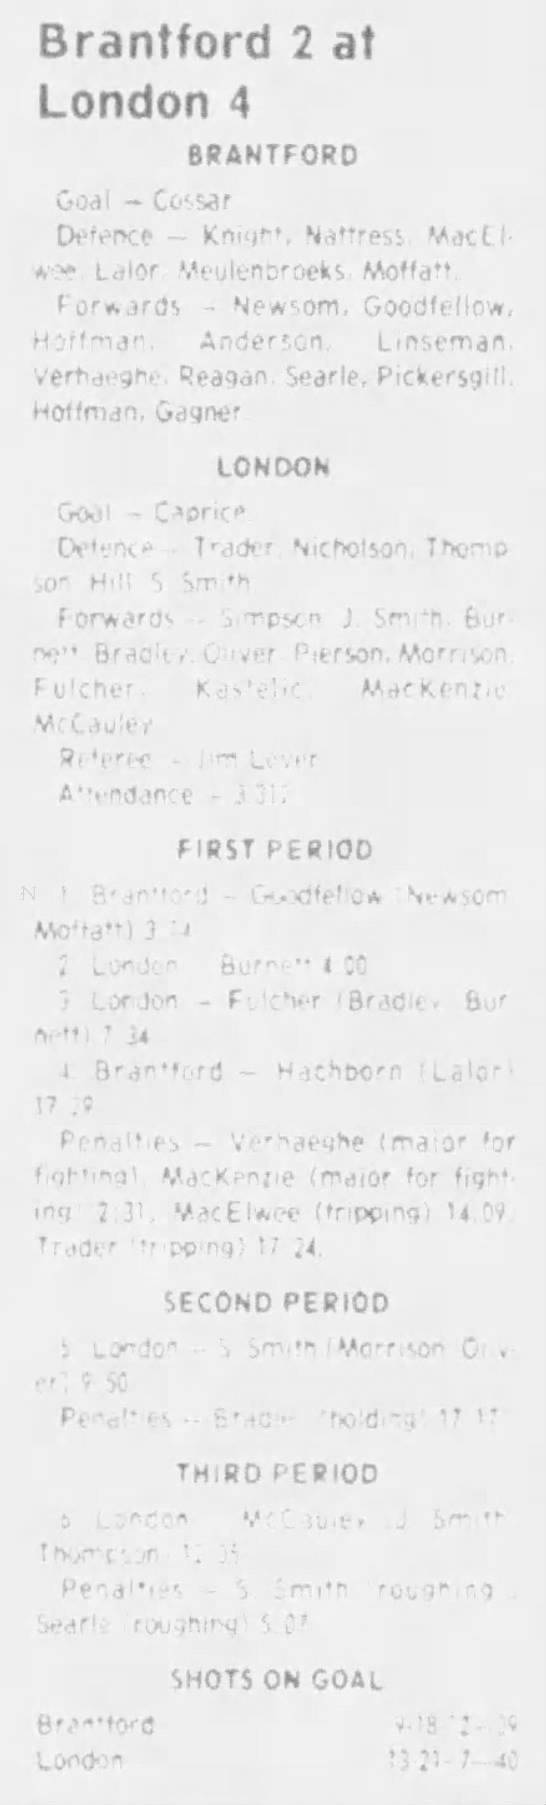 Brantford 2 at
London 4
BRANTFORD
Goal — Cossar
Defence — Knight, Nattress, MacEl-
wee, Lalor, Meulenbroeks, Moffatt.
Forwards — Newsom, Goodfellow,
Hoffman, Anderson, Linseman,
Verhaeghe, Reagan, Searle, Pickersgill,
Hoffman, Gagner
LONDON
Goal — Caprice
Defence — Trader, Nicholson, Thomp
son, Hill, S. Smith
Forwards — Simpson, J. Smith, Bur-
nett, Bradley, Oliver, Pierson, Morrison,
Fulcher, Kastelic, MacKenzie
McCauley
Referee — Jim Lever
Attendance —
FIRST PERIOD
1. Brantford — Goodfellow (Newsom
Moffatt)
2. London Burnett 4:00
3. London — Fulcher (Bradley, Bur
nett) 7:34
4. Brantford — Hachborn (Lalor)
Penalties — Verhaeghe (major for
fighting), MacKenzie (major for fight-
ing) 2:31, MacElwee (tripping) 14:09,
Trader (tripping) 17:24.
SECOND PERIOD
5. London — S. Smith (Morrison, Oliv-
er) 9:50
Penalties — Bradley (holding) 17:17
THIRD PERIOD
6. London McCauley (J. Smith
Thompson)
Penalties — S. Smith (roughing),
Searle (roughing) 5:07
SHOTS ON GOAL
Brantford 9-18-12—39
London 13-21-7—40